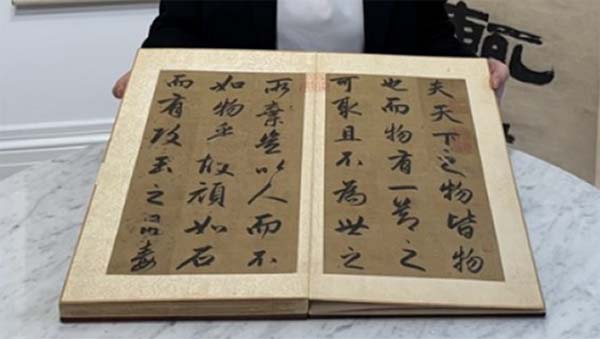 夫天下之物皆物
也而物有一節之
可取且不為世之
所棄豈以人而不
如物乎故頑如石
而有攻玉之毒